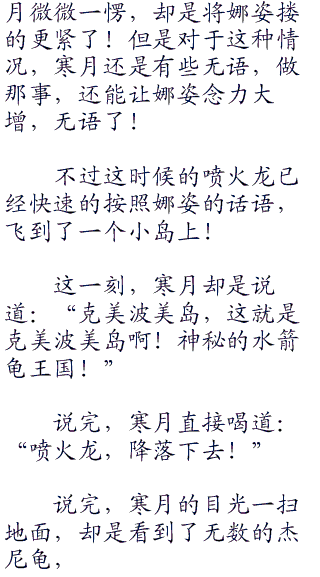 月微微一愣，却是将娜姿搂
的更紧了！但是对于这种情
况，寒月还是有些无语，做
那事，还能让娜姿念力大
增，无语了！
不过这时候的喷火龙已
经快速的按照娜姿的话语，
飞到了一个小岛上！
这一刻，寒月却是说
道：“克美波美岛，这就是
克美波美岛啊！神秘的水箭
龟王国！”
说完，寒月直接喝道：
“喷火龙，降落下去！”
说完，寒月的目光一扫
地面，却是看到了无数的杰
尼龟，